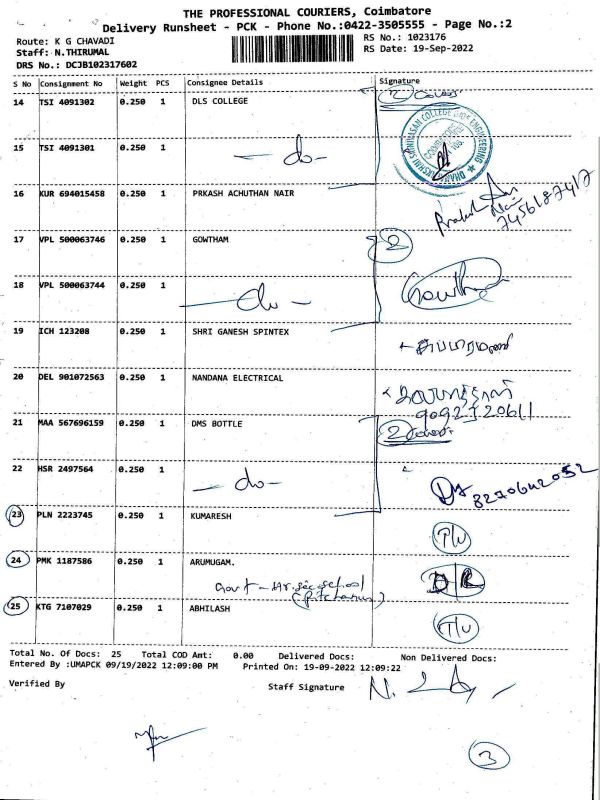 THE PROFESSIONAL COURIERS, Coimbatore
Delivery Runsheet - PCK - Phone No.:0422-3505555 - Page No.:2
Route: K G CHAVADI
RS No.: 1023176
Staff: N.THIRUMAL
RS Date: 19-Sep-2022
DRS No.: DCJB102317602
S No Consignment No Weight PCS Consignee Details Signature
14 TSI 4091302 0.250 1 DLS COLLEGE
15 TSI 4091301 0.250 1 - do -
16 KUR 694015458 0.250 1 PRKASH ACHUTHAN NAIR
17 VPL 500063746 0.250 1 GOWTHAM 2
18 VPL 500063744 0.250 1 - do - Gowtham
19 ICH 123208 0.250 1 SHRI GANESH SPINTEX
20 DEL 901072563 0.250 1 NANDANA ELECTRICAL
21 MAA 567696159 0.250 1 DMS BOTTLE 2
22 HSR 2497564 0.250 1 - do -
23 PLN 2223745 0.250 1 KUMARESH
24 PMK 1187586 0.250 1 ARUMUGAM.
Govt - Hr. sec school
25 KTG 7107029 0.250 1 ABHILASH
Total No. Of Docs: 25 Total COD Amt: 0.00 Delivered Docs: Non Delivered Docs:
Entered By :UMAPCK 09/19/2022 12:09:00 PM Printed On: 19-09-2022 12:09:22
Verified By Staff Signature
3